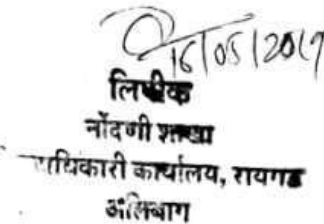 16/05/2017
लिपीक
नोंदणी शाखा
धिकारी कार्यालय, रायगड
अलिबाग